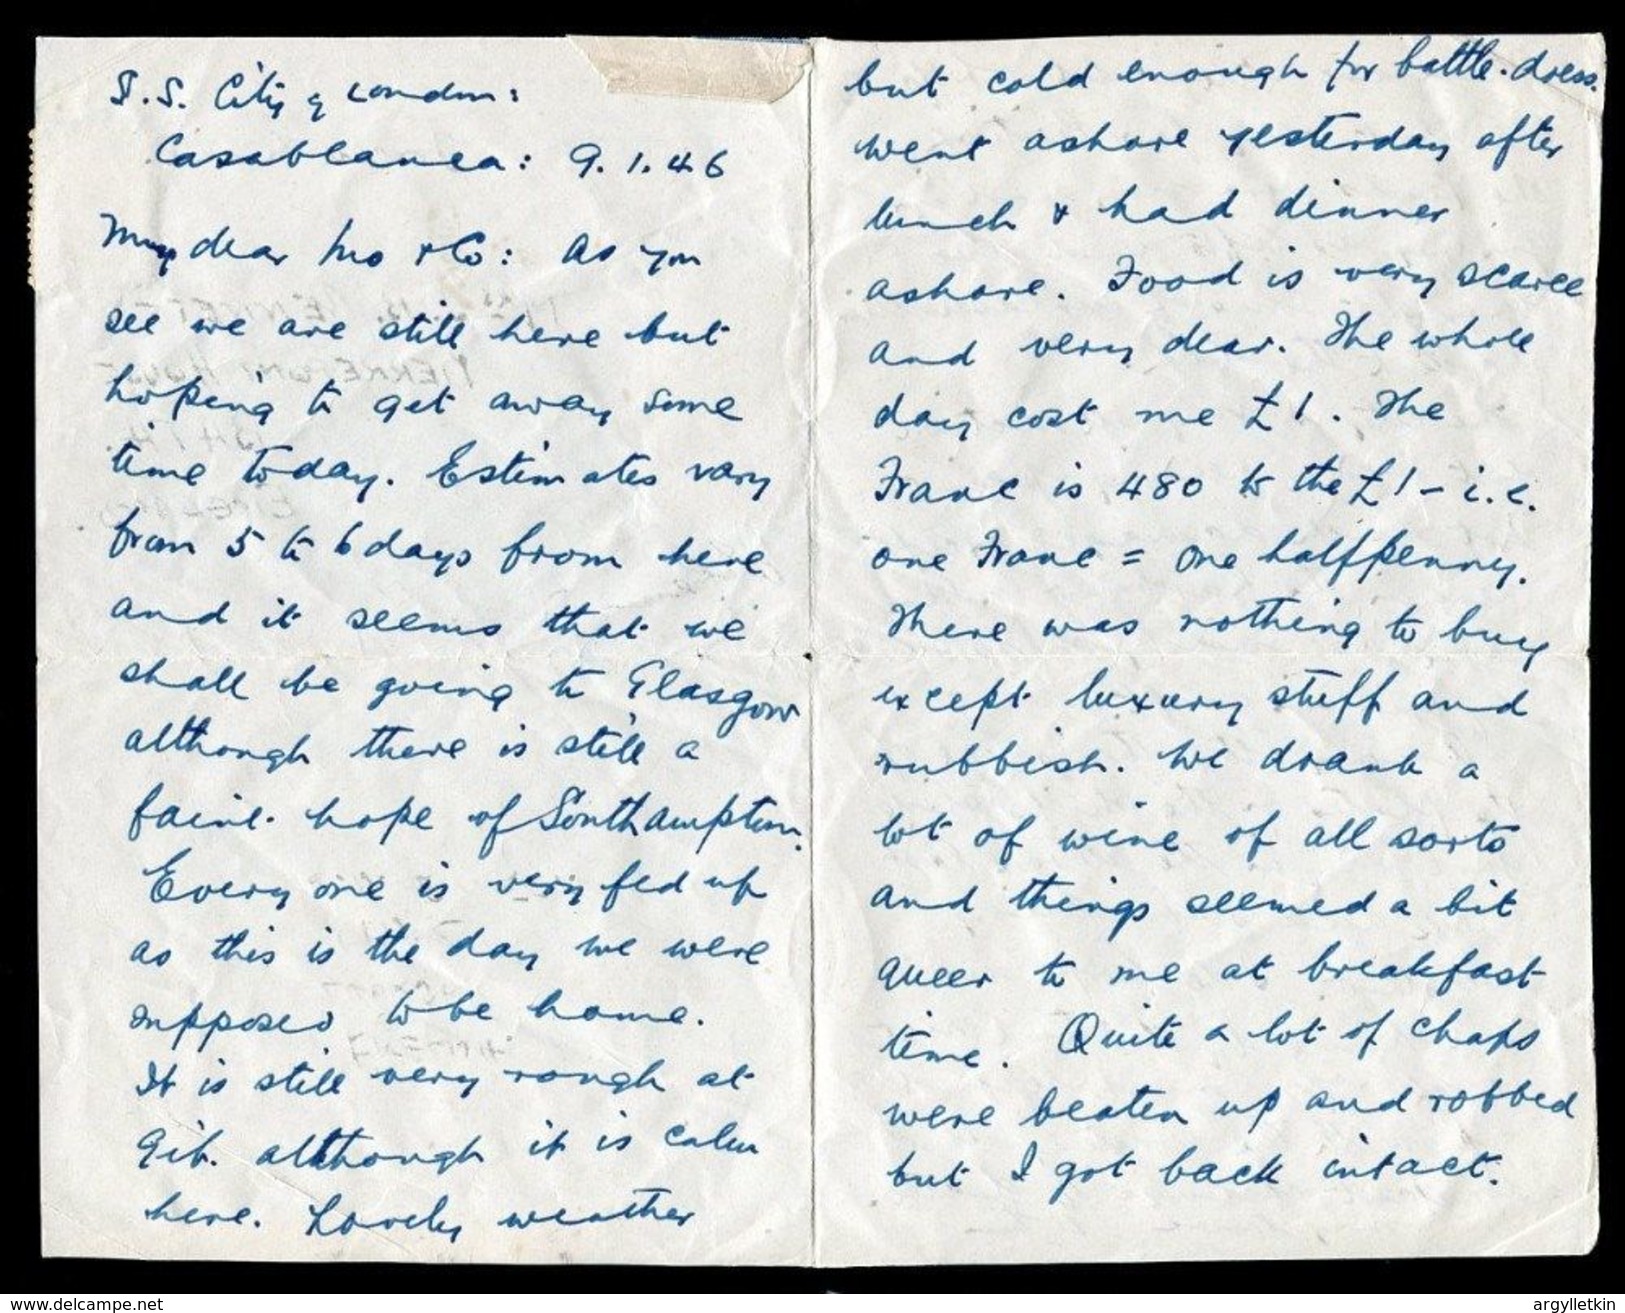 S.S. City of London:
Casablanca: 9.1.46
My dear Mo & Co: As you
see we are still here but
hoping to get away some
time today. Estimates vary
from 5 to 6 days from here
and it seems that we
shall be going to Glasgow
although there is still a
faint hope of Southampton.
Everyone is very fed up
as this is the day we were
supposed to be home.
It is still very rough at
Gib. although it is calm
here. Lovely weather
but cold enough for battle-dress.
Went ashore yesterday after
lunch & had dinner
ashore. Food is very scarce
and very dear. The whole
day cost me £1. The
Franc is 480 to the £1 - i.e.
one Franc = one halfpenny.
There was nothing to buy
except luxury stuff and
rubbish. We drank a
lot of wine of all sorts
and things seemed a bit
queer to me at breakfast
time. Quite a lot of chaps
were beaten up and robbed
but I got back intact.
www.delcampe.net
argylletkin